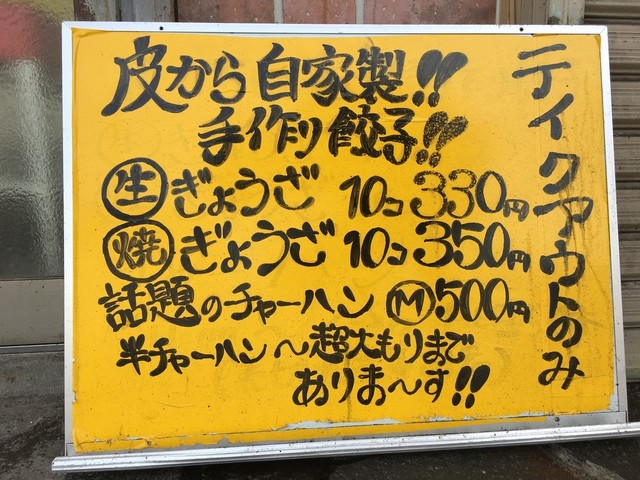 皮から自家製!!
手作り餃子!!
生ぎょうざ 10コ 330円
焼ぎょうざ 10コ 350円
話題のチャーハン M500円
半チャーハン〜超大もりまで
ありま〜す!!
テイクアウトのみ